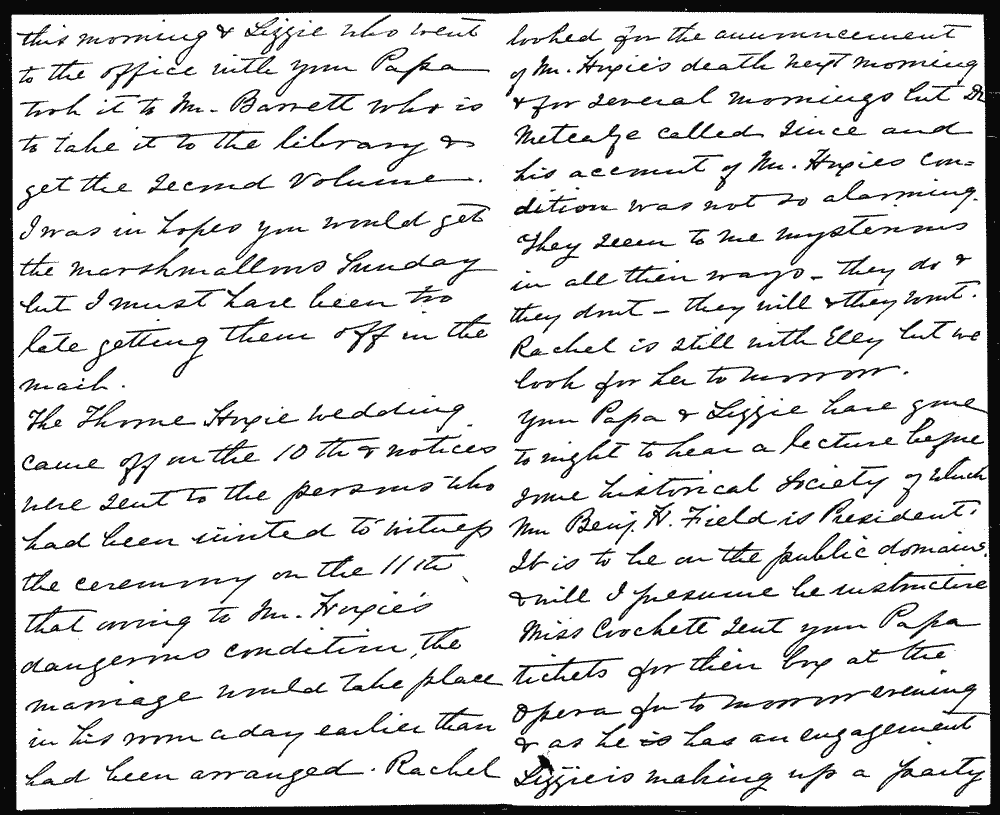 this morning & Lizzie who went
to the office with your Papa
took it to Mr. Barrett who is
to take it to the library &
get the second volume.
I was in hopes you would get
the marshmallows Sunday
but I must have been too
late getting them off in the
mail.
The Thorne Hoxie wedding
came off on the 10th & notices
were sent to the persons who
had been invited to witness
the ceremony on the 11th,
that owing to Mr. Hoxie's
dangerous condition, the
marriage would take place
in his room a day earlier than
had been arranged. Rachel
looked for the announcement
of Mr. Hoxie's death next morning
& for several mornings but Dr
Metcalfe called since and
his account of Mr. Hoxies con=
dition was not so alarming.
They seem to me mysterious
in all their ways - they do &
they dont - they will & they wont.
Rachel is still with Elly but we
look for her to morrow.
Your Papa & Lizzie have gone
to night to hear a lecture before
some historical Society of which
Mr Benj. H. Field is President.
It is to be on the public domains.
& will I presume be instructive
Miss Crochete sent your Papa
tickets for their box at the
opera for to morrow evening
& as he is has an engagement
Lizzie is making up a party